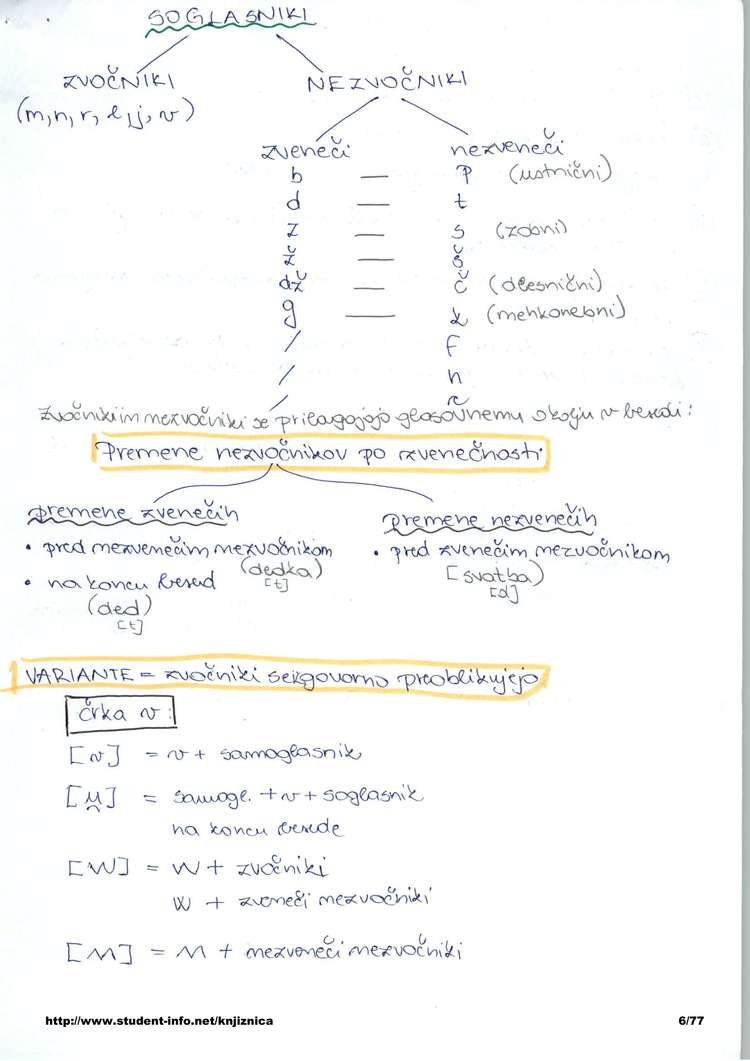 SOGLASNIKI
ZVOČNIKI NEZVOČNIKI
(m, n, r, l, j, v)
zveneči nezveneči
b — p (ustnični)
d — t
z — s (zobni)
ž — š
dž — č (dlesnični)
g — k (mehkonebni)
/ f
/ h
/ c
Zvočniki in nezvočniki se prilagojajo glasovnemu okolju v besedi:
Premene nezvočnikov po zvenečnosti
premene zvenečih premene nezvenečih
• pred nezvenečim nezvočnikom • pred zvenečim nezvočnikom
(dedka) [svatba)
[t] [d]
• na koncu besed
(ded)
[t]
VARIANTE = zvočniki se izgovorno preoblikujejo
črka v:
[v] = v + samoglasnik
[u̯] = samogl. + v + soglasnik
na koncu besede
[W] = W + zvočniki
W + zveneči nezvočniki
[ʍ] = ʍ + nezveneči nezvočniki
http://www.student-info.net/knjiznica 6/77